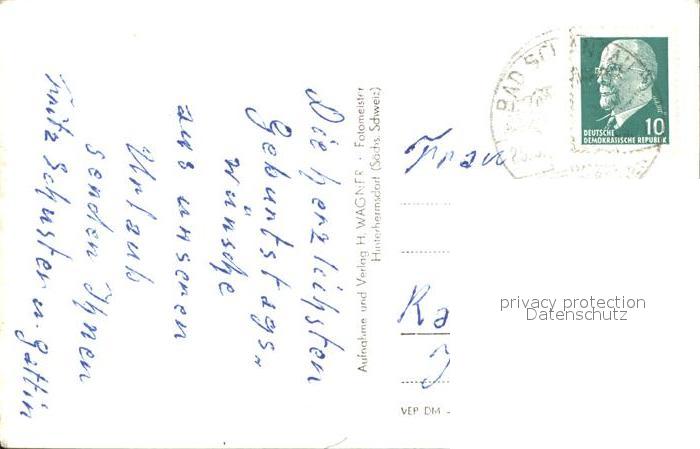 Die herzlichsten
Geburtstags„
wünsche
aus unseren
Urlaub
senden Ihnen
Fritz Schuster u. Gattin
Aufnahme und Verlag H. WAGNER · Fotomeister
Hinterhermsdorf (Sächs. Schweiz)
BAD SCHANDAU
10
DEUTSCHE
DEMOKRATISCHE REPUBLIK
Frau
Ka
VEP DM -
privacy protection
Datenschutz